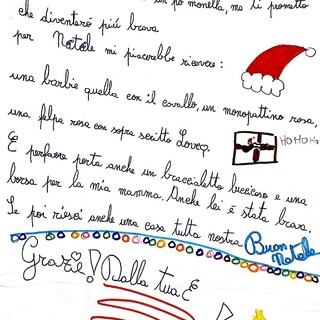 un pò monella, ma ti prometto
che diventerò piú brava
per Natale mi piacerebbe ricevere:
una barbie quella con il cavallo, un monopattino rosa,
una felpa rosa con sopra scritto Love
HoHoHo
E perfavore porta anche un braccialetto luccicoso e una
borsa per la mia mamma. Anche lei è stata brava.
Se poi riesci anche una casa tutta nostra
Buon Natale
Grazie! Dalla tua E